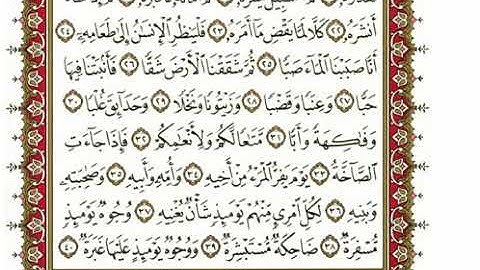 أَنشَرَهُۥ ٢٢ كَلَّا لَمَّا يَقْضِ مَآ أَمَرَهُۥ ٢٣ فَلْيَنظُرِ ٱلْإِنسَٰنُ إِلَىٰ طَعَامِهِۦٓ ٢٤
أَنَّا صَبَبْنَا ٱلْمَآءَ صَبًّا ٢٥ ثُمَّ شَقَقْنَا ٱلْأَرْضَ شَقًّا ٢٦ فَأَنۢبَتْنَا فِيهَا
حَبًّا ٢٧ وَعِنَبًا وَقَضْبًا ٢٨ وَزَيْتُونًا وَنَخْلًا ٢٩ وَحَدَآئِقَ غُلْبًا ٣٠
وَفَٰكِهَةً وَأَبًّا ٣١ مَّتَٰعًا لَّكُمْ وَلِأَنْعَٰمِكُمْ ٣٢ فَإِذَا جَآءَتِ
ٱلصَّآخَّةُ ٣٣ يَوْمَ يَفِرُّ ٱلْمَرْءُ مِنْ أَخِيهِ ٣٤ وَأُمِّهِۦ وَأَبِيهِ ٣٥ وَصَٰحِبَتِهِۦ
وَبَنِيهِ ٣٦ لِكُلِّ ٱمْرِئٍ مِّنْهُمْ يَوْمَئِذٍ شَأْنٌ يُغْنِيهِ ٣٧ وُجُوهٌ يَوْمَئِذٍ
مُّسْفِرَةٌ ٣٨ ضَاحِكَةٌ مُّسْتَبْشِرَةٌ ٣٩ وَوُجُوهٌ يَوْمَئِذٍ عَلَيْهَا غَبَرَةٌ ٤٠